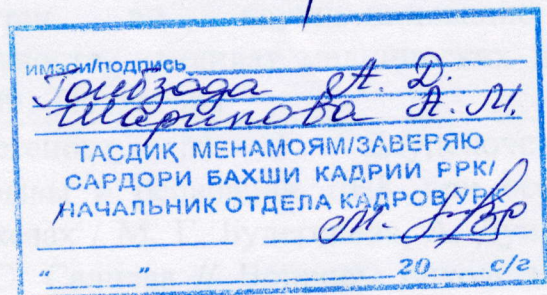 ИМЗОИ/ПОДПИСЬ
Гоибзода А. Д.
Шарипова А. М.
ТАСДИҚ МЕНАМОЯМ/ЗАВЕРЯЮ
САРДОРИ БАХШИ КАДРИИ РРК/
НАЧАЛЬНИК ОТДЕЛА КАДРОВ УРК
“____”____________20____с/г